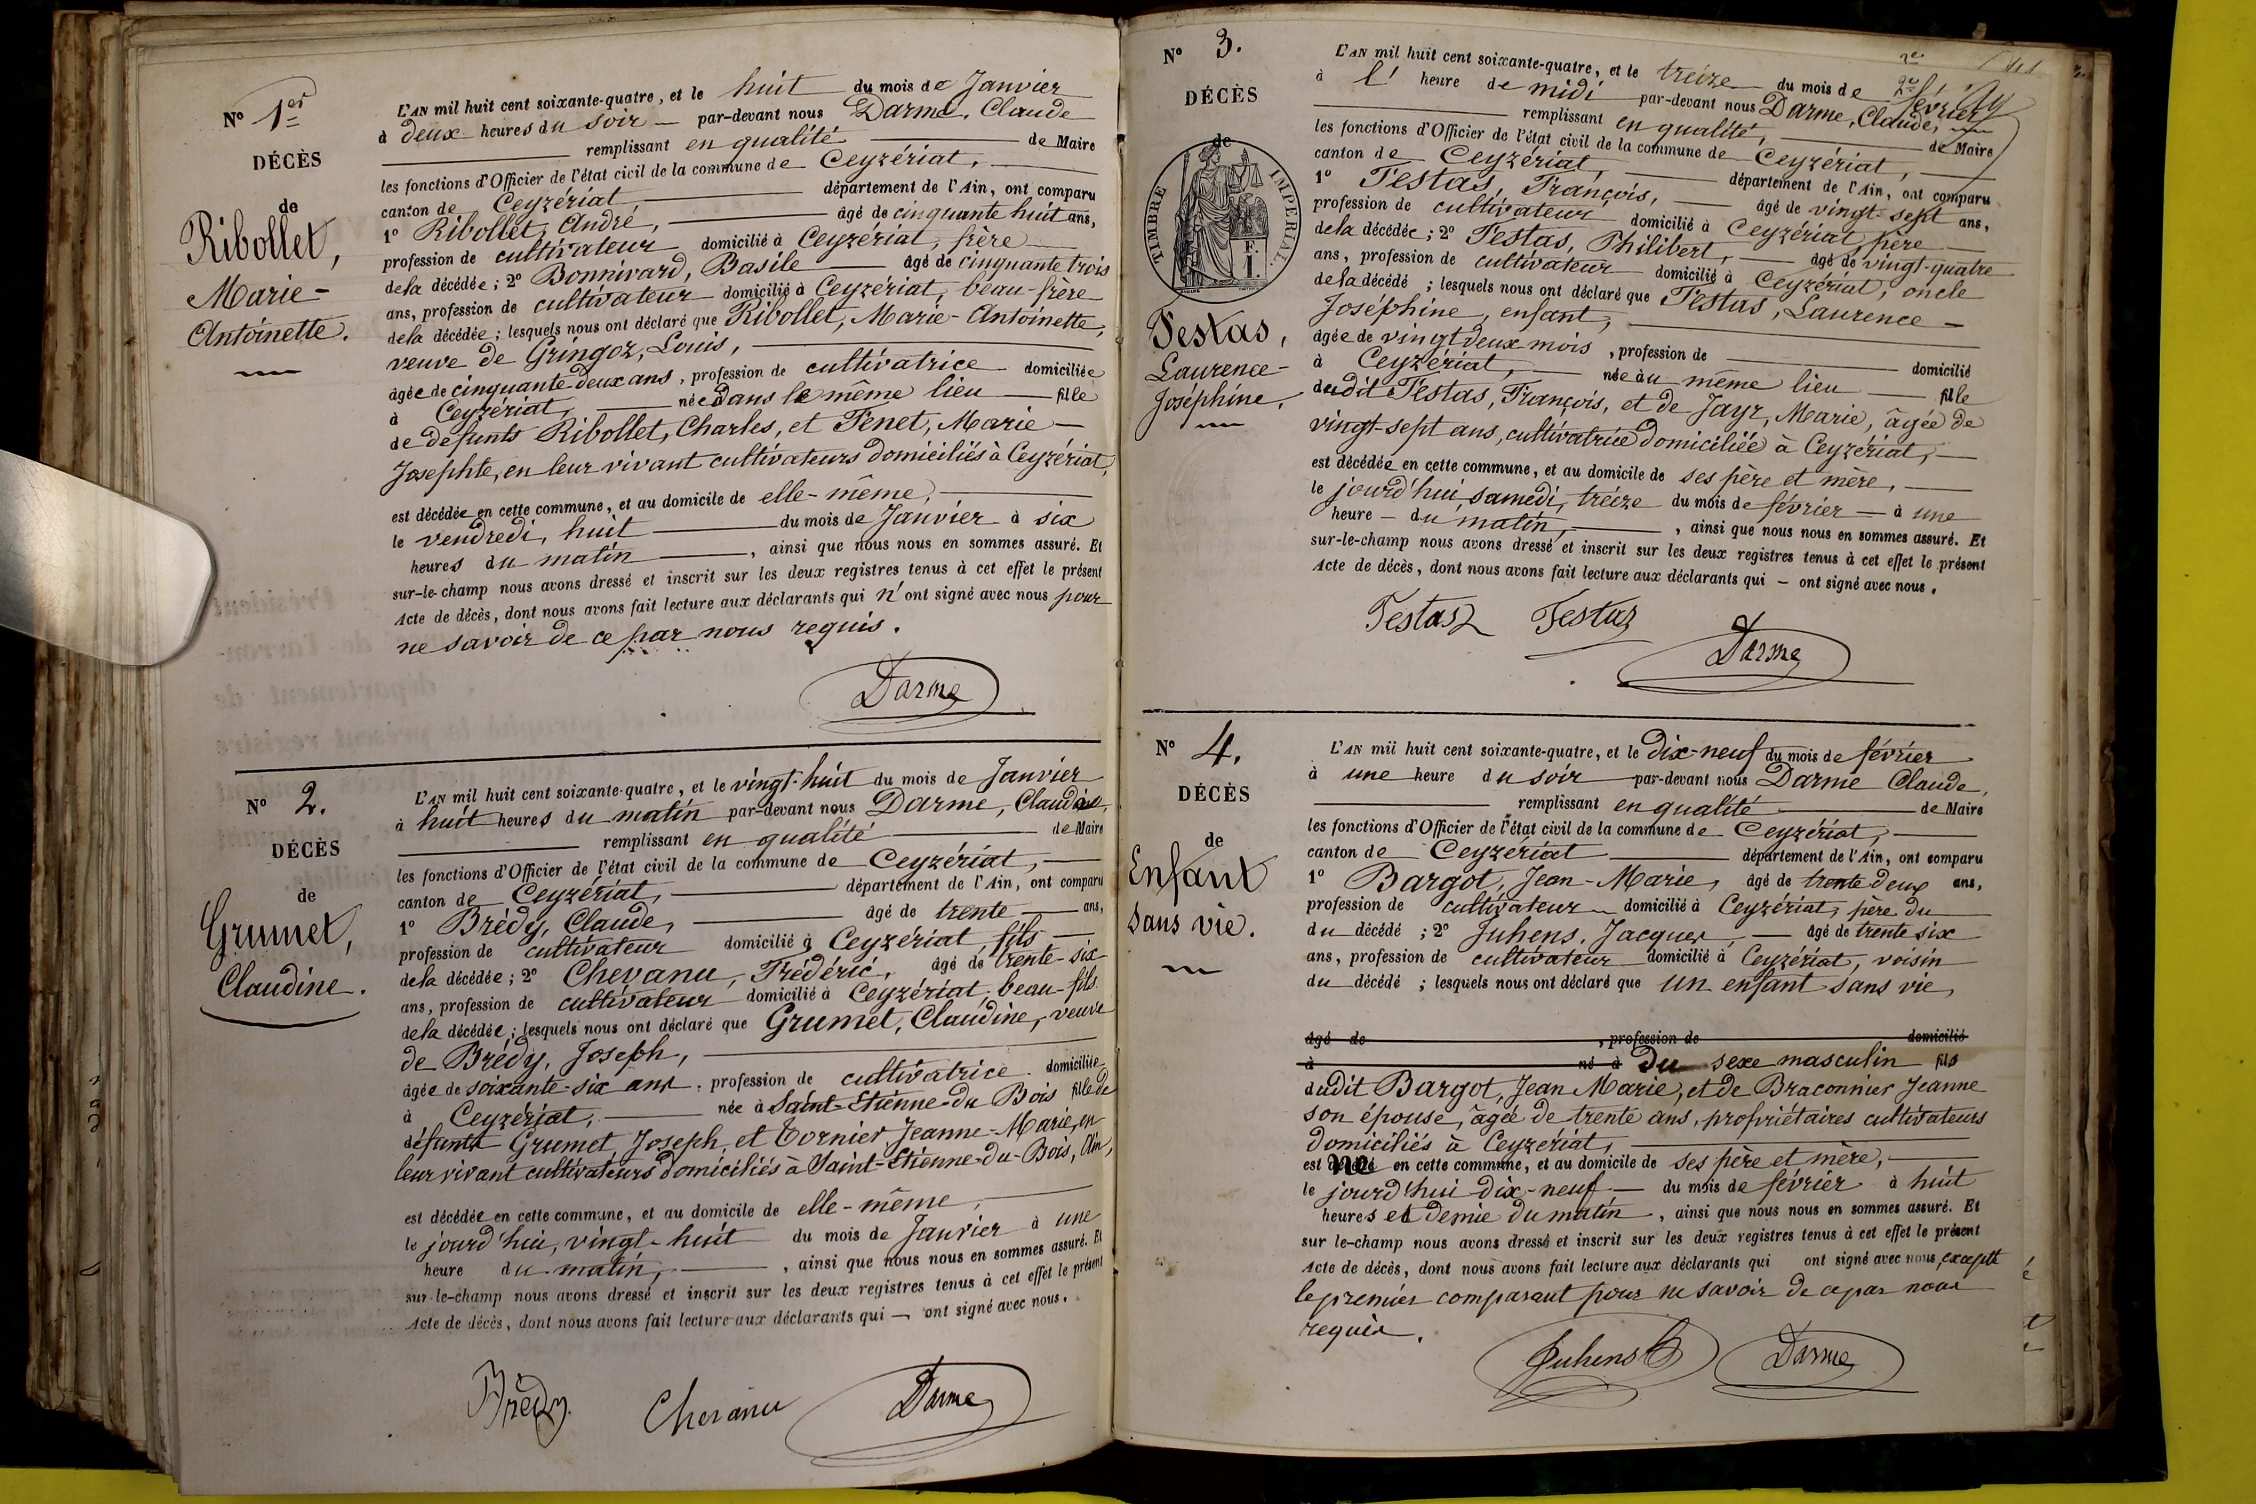 N° 1er
DÉCÈS
de
Ribollet,
Marie-
Antoinette.
L'AN mil huit cent soixante-quatre, et le huit du mois de Janvier
à deux heures du soir — par-devant nous Darme, Claude
remplissant en qualité de Maire
les fonctions d'Officier de l'état civil de la commune de Ceyzériat,
canton de Ceyzériat département de l'Ain, ont comparu
1° Ribollet, André, âgé de cinquante huit ans,
profession de cultivateur domicilié à Ceyzériat, frère
de la décédée ; 2° Bonnivard, Basile âgé de cinquante trois
ans, profession de cultivateur domicilié à Ceyzériat, beau-frère
de la décédée ; lesquels nous ont déclaré que Ribollet, Marie-Antoinette,
veuve de Gringoz, Louis,
âgée de cinquante deux ans, profession de cultivatrice domiciliée
à Ceyzériat, née dans le même lieu fille
de défunts Ribollet, Charles, et Tenet, Marie-
Josephte, en leur vivant cultivateurs domiciliés à Ceyzériat,
est décédée en cette commune, et au domicile de elle-même,
le vendredi, huit du mois de Janvier à six
heures du matin, ainsi que nous nous en sommes assuré. Et
sur-le-champ nous avons dressé et inscrit sur les deux registres tenus à cet effet le présent
Acte de décès, dont nous avons fait lecture aux déclarants qui n'ont signé avec nous pour
ne savoir de ce par nous requis.
Darme
N° 2.
DÉCÈS
de
Grumet,
Claudine.
L'AN mil huit cent soixante-quatre, et le vingt-huit du mois de Janvier
à huit heures du matin par-devant nous Darme, Claude,
remplissant en qualité de Maire
les fonctions d'Officier de l'état civil de la commune de Ceyzériat,
canton de Ceyzériat, département de l'Ain, ont comparu
1° Brédy, Claude, âgé de trente ans,
profession de cultivateur domicilié à Ceyzériat, fils
de la décédée ; 2° Chevanu, Frédéric, âgé de trente-six
ans, profession de cultivateur domicilié à Ceyzériat, beau-fils
de la décédée ; lesquels nous ont déclaré que Grumet, Claudine, veuve
de Brédy, Joseph,
âgée de soixante-six ans, profession de cultivatrice domiciliée
à Ceyzériat, née à Saint-Etienne-du Bois fille de
défunts Grumet, Joseph, et Tornier Jeanne-Marie, en
leur vivant cultivateurs domiciliés à Saint-Etienne-du-Bois, Ain,
est décédée en cette commune, et au domicile de elle-même,
le jourd'hui, vingt-huit du mois de Janvier à une
heure du matin, ainsi que nous nous en sommes assuré. Et
sur-le-champ nous avons dressé et inscrit sur les deux registres tenus à cet effet le présent
Acte de décès, dont nous avons fait lecture aux déclarants qui — ont signé avec nous.
Brédy Chevanu Darme
N° 3.
DÉCÈS
de
TIMBRE IMPÉRIAL.
F.
1.
Testas,
Laurence-
Joséphine.
L'AN mil huit cent soixante-quatre, et le treize du mois de février
à l' heure de midi par-devant nous Darme, Claude,
remplissant en qualité, de Maire
les fonctions d'Officier de l'état civil de la commune de Ceyzériat,
canton de Ceyzériat, département de l'Ain, ont comparu
1° Testas, François, âgé de vingt-sept ans,
profession de cultivateur domicilié à Ceyzériat, père
de la décédée ; 2° Testas, Philibert, âgé de vingt-quatre
ans, profession de cultivateur domicilié à Ceyzériat, oncle
de la décédé ; lesquels nous ont déclaré que Testas, Laurence-
Joséphine, enfant,
âgée de vingt deux mois, profession de domicilié
à Ceyzériat, née au même lieu fille
dudit Testas, François, et de Jayr, Marie, âgée de
vingt-sept ans, cultivatrice domiciliée à Ceyzériat,
est décédée en cette commune, et au domicile de ses père et mère,
le jourd'hui, samedi, treize du mois de février — à une
heure — du matin, ainsi que nous nous en sommes assuré. Et
sur-le-champ nous avons dressé et inscrit sur les deux registres tenus à cet effet le présent
Acte de décès, dont nous avons fait lecture aux déclarants qui — ont signé avec nous.
Testas Testas
Darme
N° 4.
DÉCÈS
de
Enfant
sans vie.
L'AN mil huit cent soixante-quatre, et le dix-neuf du mois de février
à une heure du soir par-devant nous Darme Claude,
remplissant en qualité de Maire
les fonctions d'Officier de l'état civil de la commune de Ceyzériat,
canton de Ceyzériat département de l'Ain, ont comparu
1° Bargot, Jean-Marie, âgé de trente deux ans,
profession de cultivateur domicilié à Ceyzériat, père du
du décédé ; 2° Juhens, Jacques, âgé de trente six
ans, profession de cultivateur domicilié à Ceyzériat, voisin
du décédé ; lesquels nous ont déclaré que un enfant sans vie,
âgé de , profession de domicilié
à né à du sexe masculin fils
dudit Bargot, Jean Marie, et de Braconnier Jeanne
son épouse, âgée de trente ans, propriétaires cultivateurs
domiciliés à Ceyzériat,
est né en cette commune, et au domicile de ses père et mère,
le jourd'hui dix-neuf du mois de février à huit
heures et demie du matin, ainsi que nous nous en sommes assuré. Et
sur-le-champ nous avons dressé et inscrit sur les deux registres tenus à cet effet le présent
Acte de décès, dont nous avons fait lecture aux déclarants qui ont signé avec nous, excepté
le premier comparant pour ne savoir de ce par nous
requis.
Juhens Darme